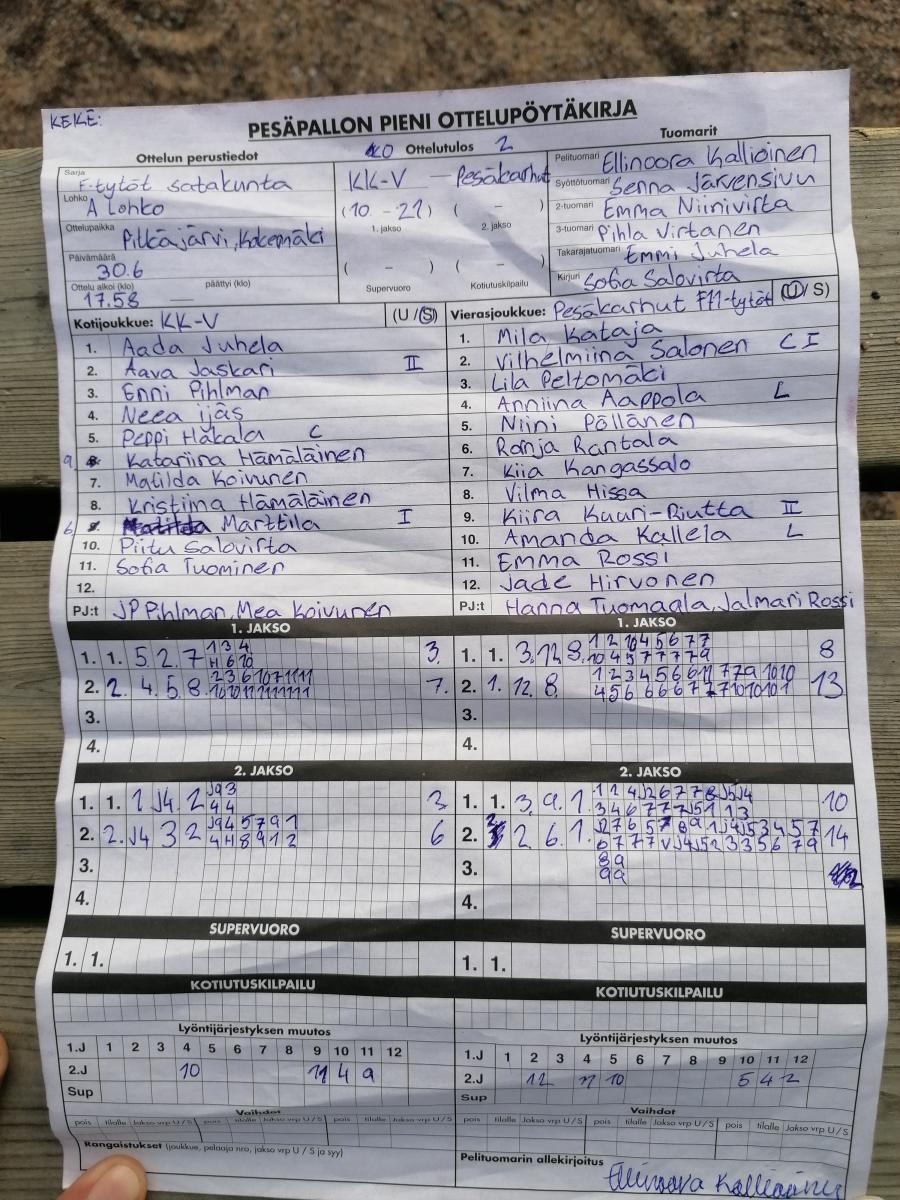 KEKE:
PESÄPALLON PIENI OTTELUPÖYTÄKIRJA
Ottelun perustiedot
0 Ottelutulos 2
Tuomarit
Sarja F-tytöt satakunta
Lohko A Lohko
Ottelupaikka Pitkäjärvi, Kokemäki
Päivämäärä 30.6
Ottelu alkoi (klo) 17.58 päättyi (klo)
KK-V – Pesäkarhut
(10 - 21) ( - )
1. jakso 2. jakso
( - ) ( - )
Supervuoro Kotiutuskilpailu
Pelituomari Ellinoora Kallioinen
Syöttötuomari Senna Järvensivu
2-tuomari Emma Niinivirta
3-tuomari Pihla Virtanen
Takarajatuomari Emmi Juhela
Kirjuri Sofia Salovirta
Kotijoukkue: KK-V (U / S)
1. Aada Juhela
2. Aava Jaskari II
3. Enni Pihlman
4. Neea ijäs
5. Peppi Hakala C
9 Katariina Hämäläinen
7. Matilda Koivunen
8. Kristiina Hämäläinen
6 Marttila I
10. Piitu Salovirta
11. Sofia Tuominen
12.
PJ:t JP Pihlman, Mea Koivunen
Vierasjoukkue: Pesäkarhut F11-tytöt (U / S)
1. Mila Kataja
2. Vilhelmiina Salonen C I
3. Lila Peltomäki
4. Anniina Aappola L
5. Niini Pöllänen
6. Ronja Rantala
7. Kiia Kangassalo
8. Vilma Hissa
9. Kiira Kuuri-Riutta II
10. Amanda Kallela L
11. Emma Rossi
12. Jade Hirvonen
PJ:t Hanna Tuomaala, Jalmari Rossi
1. JAKSO
1. 1. 5. 2. 7 1 3 4 3.
H 6 10
2. 2. 4. 5. 8. 2 3 6 10 7 11 11 7.
10 10 11 11 11 11 11
3.
4.
1. JAKSO
1. 1. 3. 12 8. 1 2 10 4 5 6 7 7 8
10 4 5 7 7 7 7 9
2. 1. 12. 8. 1 2 3 4 5 6 6 11 7 7 9 10 10 13
4 5 6 6 6 6 7 7 7 10 10 10 1
3.
4.
2. JAKSO
1. 1. 1 J4. 2 J9 3
4 4
2. 2. J4 3 2 J9 4 5 7 9 1 6
4 H 8 9 1 2
3.
4.
2. JAKSO
1. 1. 3. 9. 1. 1 1 4 J2 6 7 7 8 J5 J4 10
3 4 6 7 7 7 J5 1 1 3
2. 2 6. 1. J2 7 6 5 7 8 9 1 J4 J5 3 4 5 7 14
6 7 7 7 V J4 J5 2 3 3 5 6 7 9
3. 8 9
9 9
4.
SUPERVUORO
1. 1.
SUPERVUORO
1. 1.
KOTIUTUSKILPAILU
KOTIUTUSKILPAILU
Lyöntijärjestyksen muutos
1.J 1 2 3 4 5 6 7 8 9 10 11 12
2.J 10 11 4 9
Sup
Lyöntijärjestyksen muutos
1.J 1 2 3 4 5 6 7 8 9 10 11 12
2.J 12 11 10 5 4 2
Sup
Vaihdot
pois tilalle Jakso vrp U / S pois tilalle Jakso vrp U / S pois tilalle Jakso vrp U / S
Vaihdot
pois tilalle Jakso vrp U / S pois tilalle Jakso vrp U / S pois tilalle Jakso vrp U / S
Rangaistukset (joukkue, pelaaja nro, jakso vrp U / S ja syy)
Pelituomarin allekirjoitus
Ellinoora Kallioinen